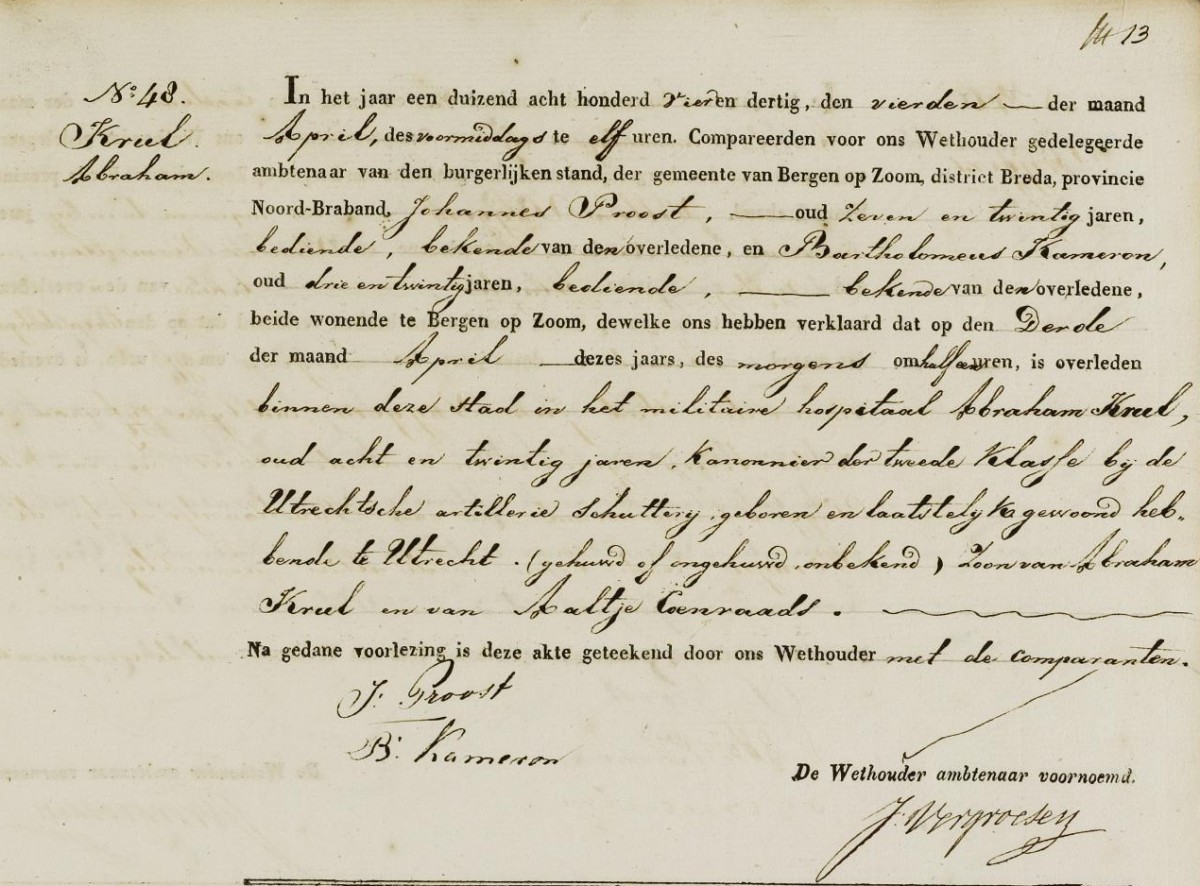 13
No. 48.
Kreel
Abraham.
In het jaar een duizend acht honderd vier en dertig, den vierden — der maand
April, des voormiddags te elf uren. Compareerden voor ons Wethouder gedelegeerde
ambtenaar van den burgerlijken stand, der gemeente van Bergen op Zoom, district Breda, provincie
Noord-Braband, Johannes Proost, — oud zeven en twintig jaren,
bediende, bekende van den overledene, en Bartholomeus Kameron,
oud drie en twintig jaren, bediende, — bekende van den overledene,
beide wonende te Bergen op Zoom, dewelke ons hebben verklaard dat op den Derde
der maand April — dezes jaars, des morgens om half een uren, is overleden
binnen deze stad in het militaire hospitaal Abraham Kreel,
oud acht en twintig jaren, Kanonnier der tweede Klasse bij de
Utrechtsche artillerie Schutterij, geboren en laatstelijk gewoond heb-
bende te Utrecht. (gehuwd of ongehuwd onbekend) Zoon van Abraham
Kreel en van Aaltje Coenraads.
Na gedane voorlezing is deze akte geteekend door ons Wethouder met de comparanten.
J. Proost
B. Kameron
De Wethouder ambtenaar voornoemd.
J. Vergroesen